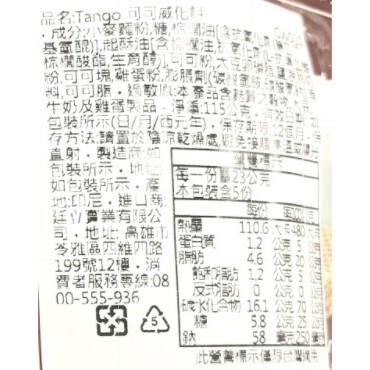 品名:Tango 可可威化餅
.成分:小麥麵粉,糖,棕櫚油
基氫醌),起酥油(含棕櫚油,
棕櫚酸酯,生育醇),可可粉,大豆
粉,可可塊,雞蛋粉,膨脹劑(碳
料(可可脂.過敏原:本產品含
牛奶及雞蛋製品.淨重:115公
包裝所示(日/月/西元年).保存期限:12個月.
存方法:請置於陰涼乾燥處
直射.製造商:如
包裝所示.地址:
如包裝所示.產
地:印尼.進口商:
廷立實業有限公
司.地址:高雄市
苓雅區四維四路
199號12樓.消
費者服務專線:08
00-555-936
營養標示
每一份量23公克
本包裝含5份
每份
熱量 110.6 大卡 480
蛋白質 1.2 公克 5
脂肪 4.6 公克 20
飽和脂肪 1.2 公克 5
反式脂肪 0 公克 0
碳水化合物 16.1 公克 70
糖 5.8 公克 25
鈉 58 毫克 250
此營養標示僅供台灣適用
5